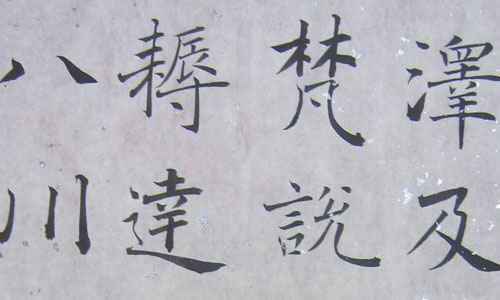 澤及
梵說
耨達
八川